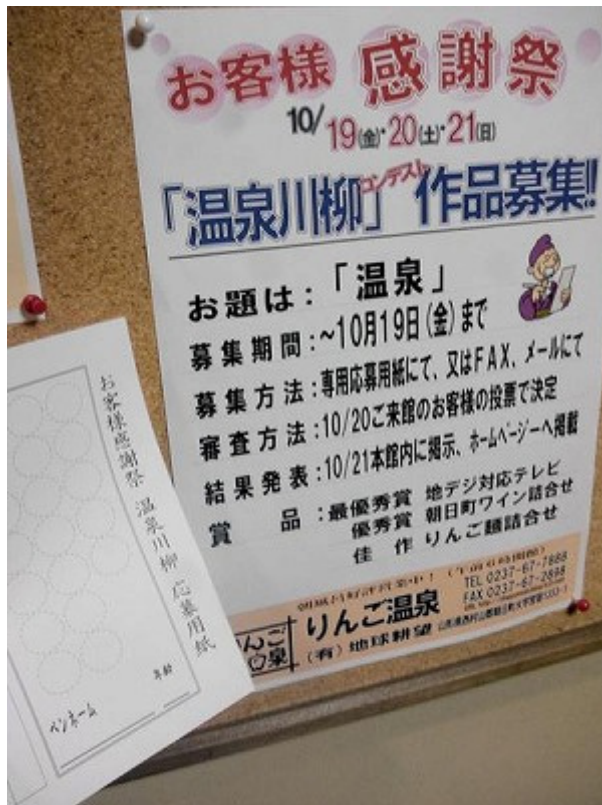 お客様 感謝祭
10/19(金)・20(土)・21(日)
「温泉川柳」コンテスト 作品募集!!
お題は:「温泉」
募集期間:~10月19日(金)まで
募集方法:専用応募用紙にて、又はFAX、メールにて
審査方法:10/20ご来館のお客様の投票で決定
結果発表:10/21本館内に掲示、ホームページへ掲載
賞 品:最優秀賞 地デジ対応テレビ
優秀賞 朝日町ワイン詰合せ
佳 作 りんご麺詰合せ
TEL 0237-67-7888
FAX 0237-67-2898
りんご温泉
(有)地球耕望
お客様感謝祭 温泉川柳 応募用紙
年齢
ペンネーム